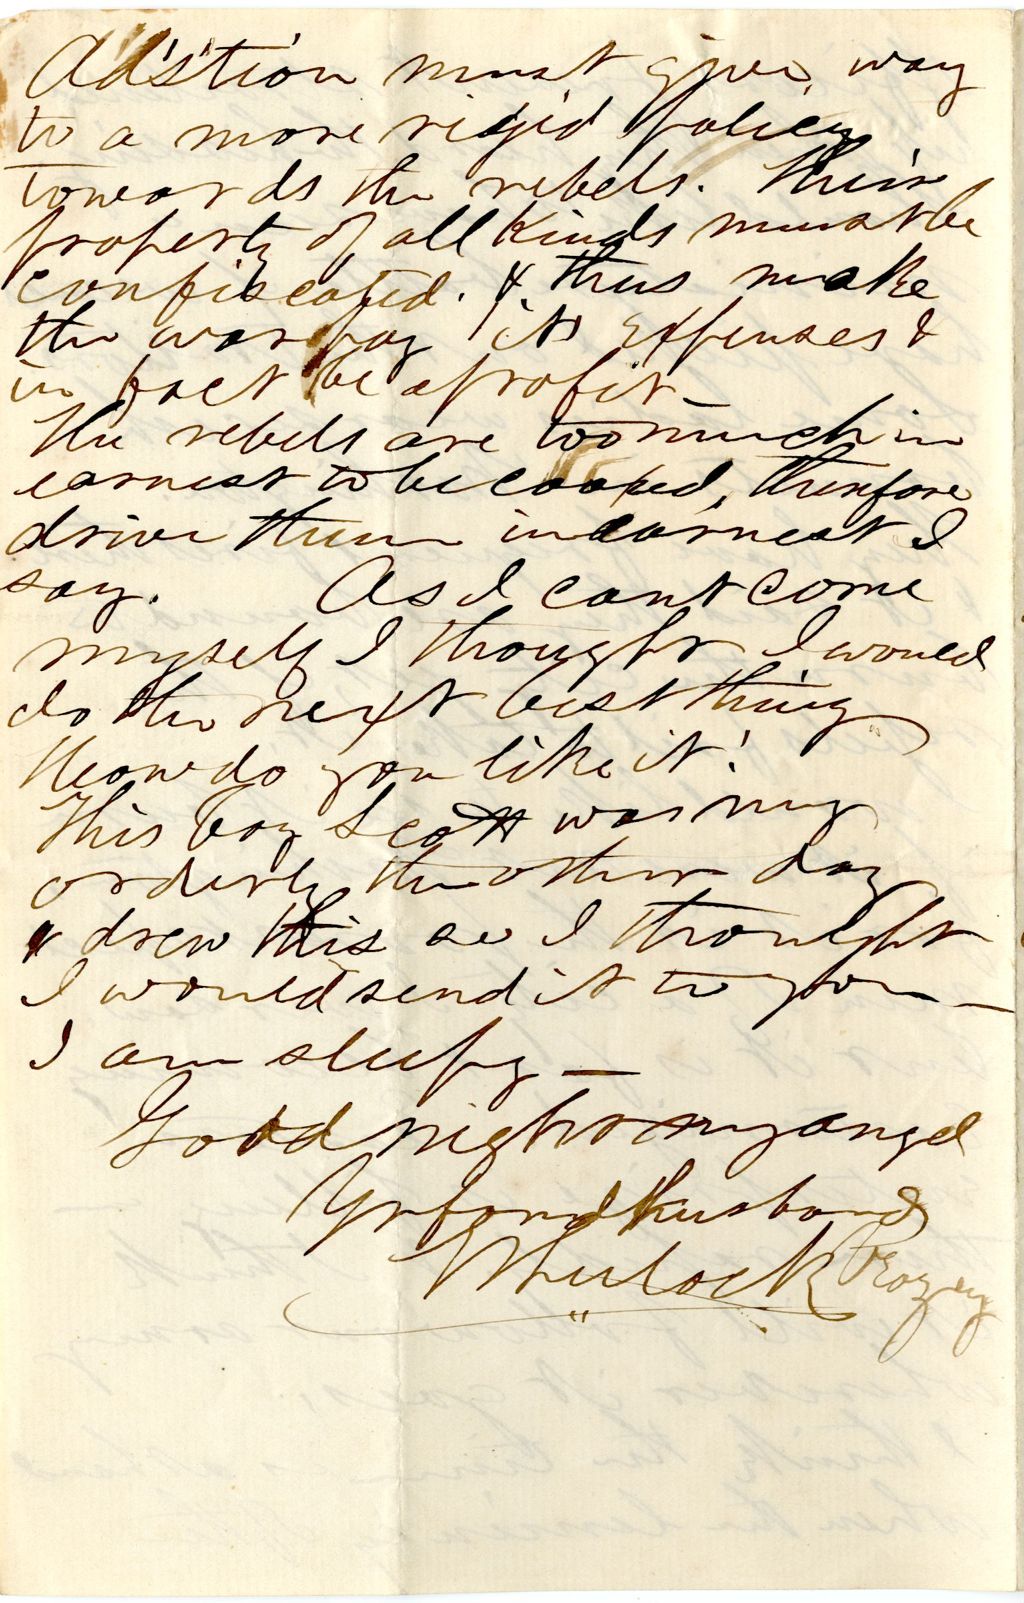 Ad's'tion must give way
to a more rigid policy
towards the rebels. Their
property of all kinds must be
confiscated. & thus make
the war pay its expenses &
in fact be a profit—
The rebels are too much in
earnest to be coaxed, therefore
drive them in earnest I
say. As I cant come
myself I thought I would
do the next best thing
How do you like it!
This boy Scott was my
orderly the other day
& drew this so I thought
I would send it to you—
I am sleepy—
Good night my angel
Yr fond Husband
Wheelock